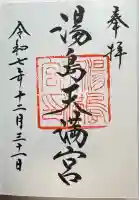 奉拝
湯島天満宮
令和七年十二月三十一日